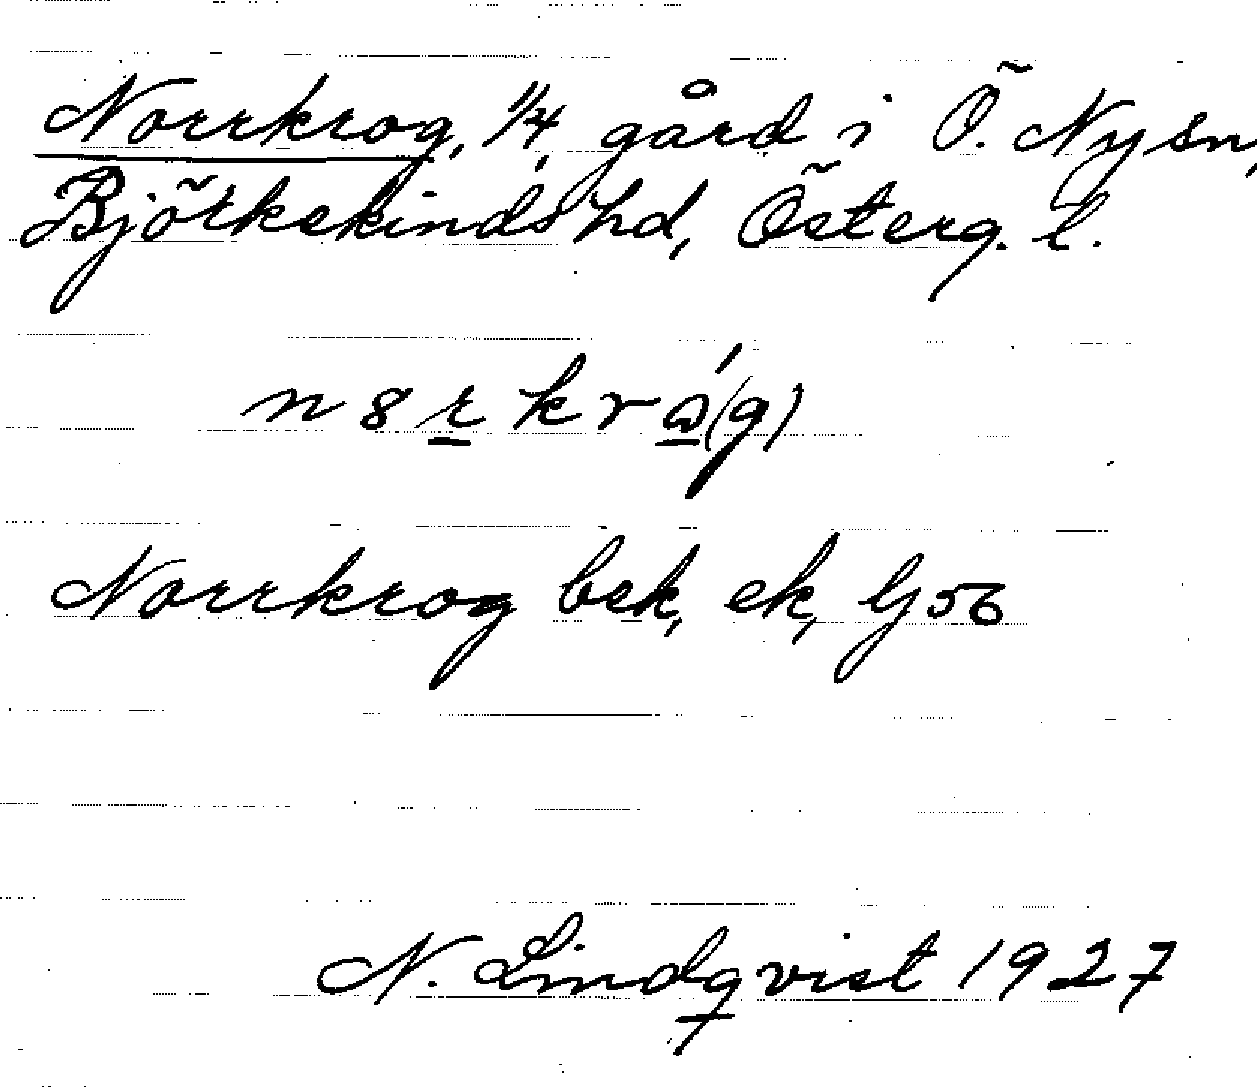 Norrkrog, 1/4 gård i Ö. Ny sn,
Björkekinds hd, Österg. l.
Norrkrog bek, ek, Gj 56
N. Lindqvist 1927